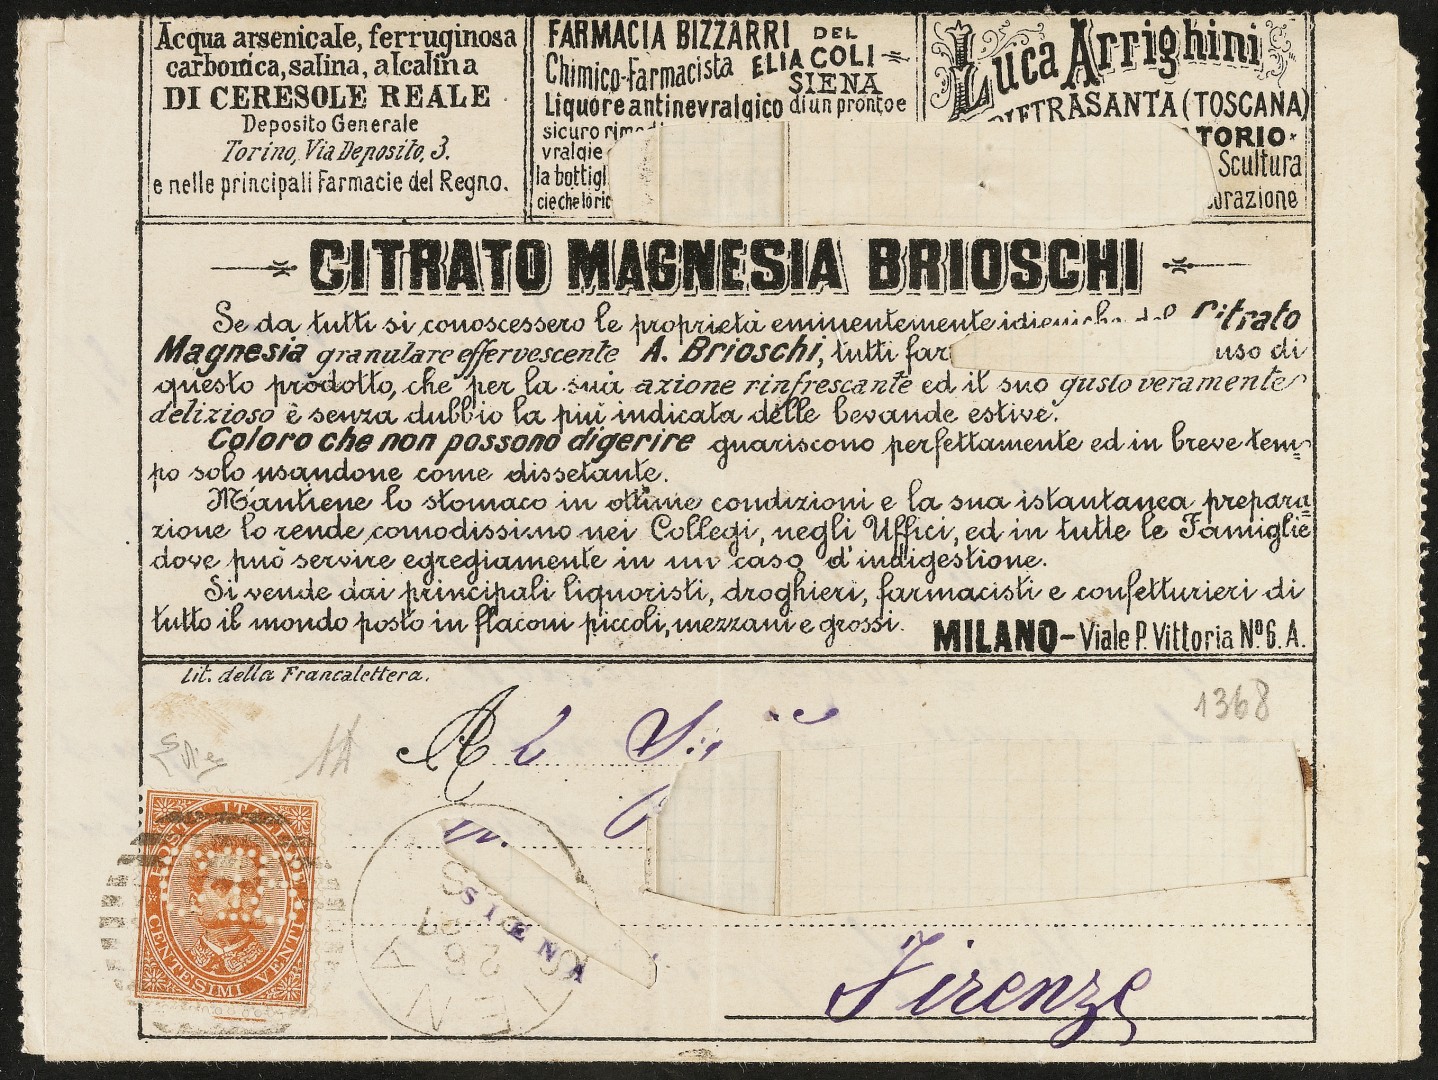 Acqua arsenicale, ferruginosa
carbonica, salina, alcalina
DI CERESOLE REALE
Deposito Generale
Torino, Via Deposito, 3.
e nelle principali Farmacie del Regno.
FARMACIA BIZZARRI DEL
Chimico-Farmacista ELIA COLI
SIENA
Liquore antinevralgico di un pronto e
sicuro
vralgie
la
Luca Arrighini
PIETRASANTA (TOSCANA)
Scultura
CITRATO MAGNESIA BRIOSCHI
Se da tutti si conoscessero le proprietà eminentemente igieniche del Citrato
Magnesia granulare effervescente A. Brioschi, tutti uso di
questo prodotto, che per la sua azione rinfrescante ed il suo gusto veramente
delizioso è senza dubbio la più indicata delle bevande estive.
Coloro che non possono digerire guariscono perfettamente ed in breve tem=
po solo usandone come dissetante.
Mantiene lo stomaco in ottime condizioni e la sua istantanea prepara=
zione lo rende comodissimo nei Collegi, negli Uffici, ed in tutte le Famiglie
dove può servire egregiamente in un caso d'indigestione.
Si vende dai principali liquoristi, droghieri, farmacisti e confetturieri di
tutto il mondo posto in flaconi piccoli, mezzani e grossi. MILANO - Viale P. Vittoria Nº 6. A.
Lit. della Francalettera.
1368
POSTE ITALIANE
CENTESIMI VENTI
SIENA
26
SIENA
Firenze